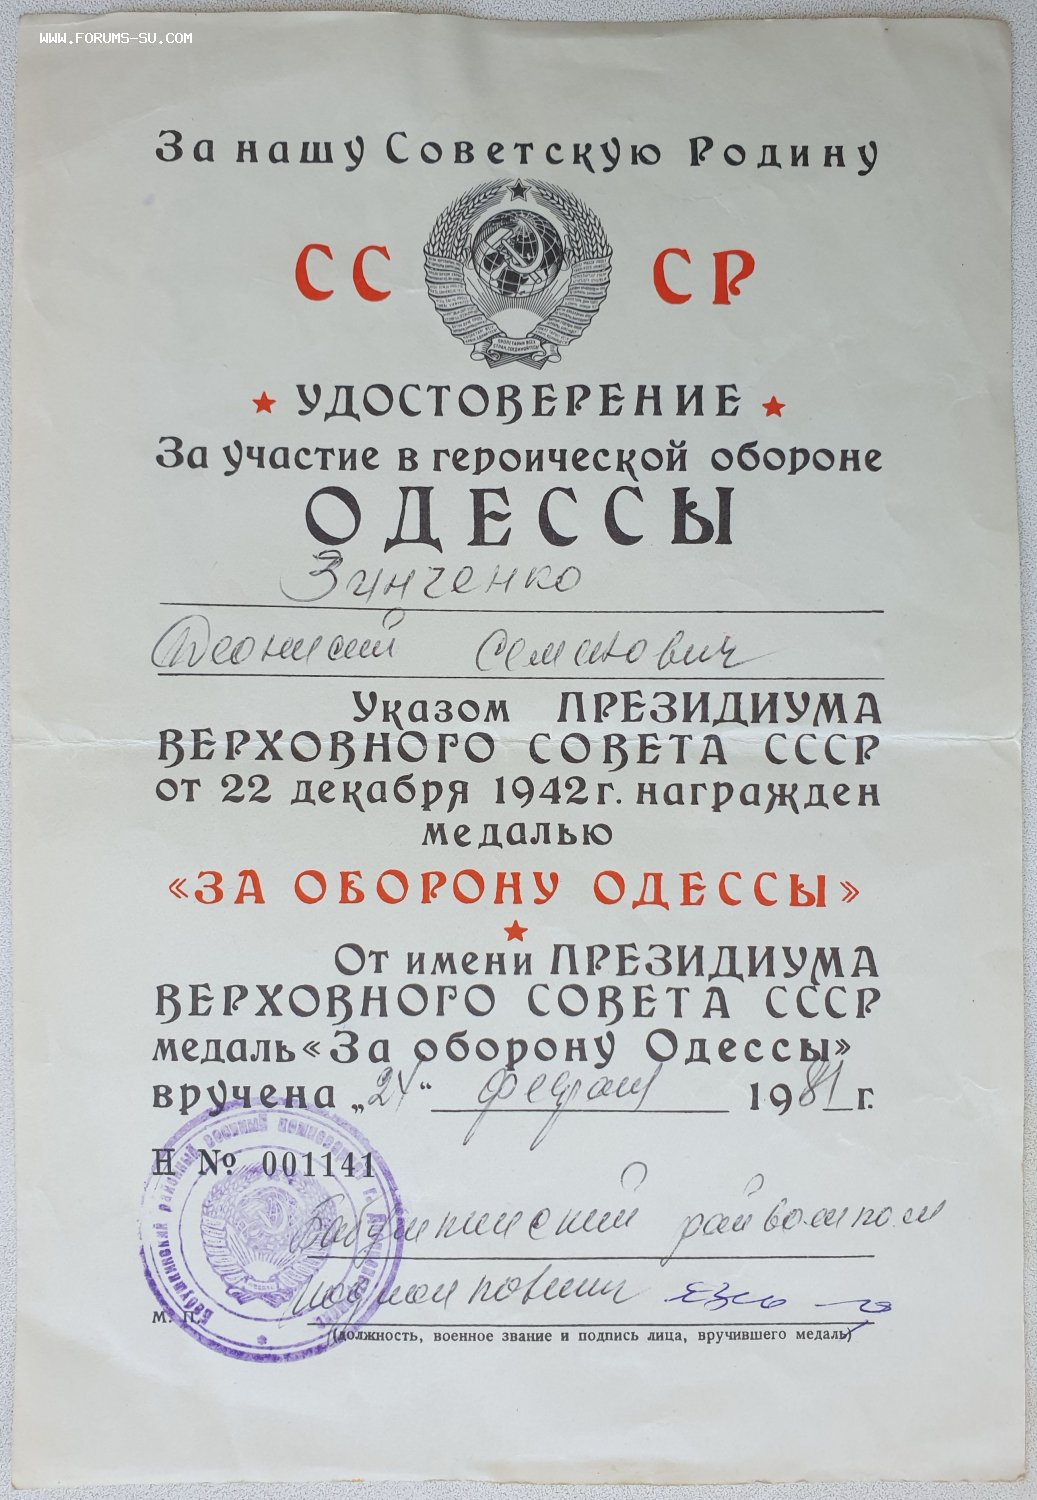 WWW.FORUMS-SU.COM
За нашу Советскую Родину
СС СР
УДОСТОВЕРЕНИЕ
За участие в героической обороне
ОДЕССЫ
Зинченко
Семенович
Указом ПРЕЗИДИУМА
ВЕРХОВНОГО СОВЕТА СССР
от 22 декабря 1942 г. награжден
медалью
«ЗА ОБОРОНУ ОДЕССЫ»
От имени ПРЕЗИДИУМА
ВЕРХОВНОГО СОВЕТА СССР
медаль «За оборону Одессы»
вручена „24“ февраля 1981 г.
Н № 001141
Бабушкинский райвоенком
подполковник
м. п.
(должность, военное звание и подпись лица, вручившего медаль)
Бабушкинский районный военный комиссариат г. Днепропетровска